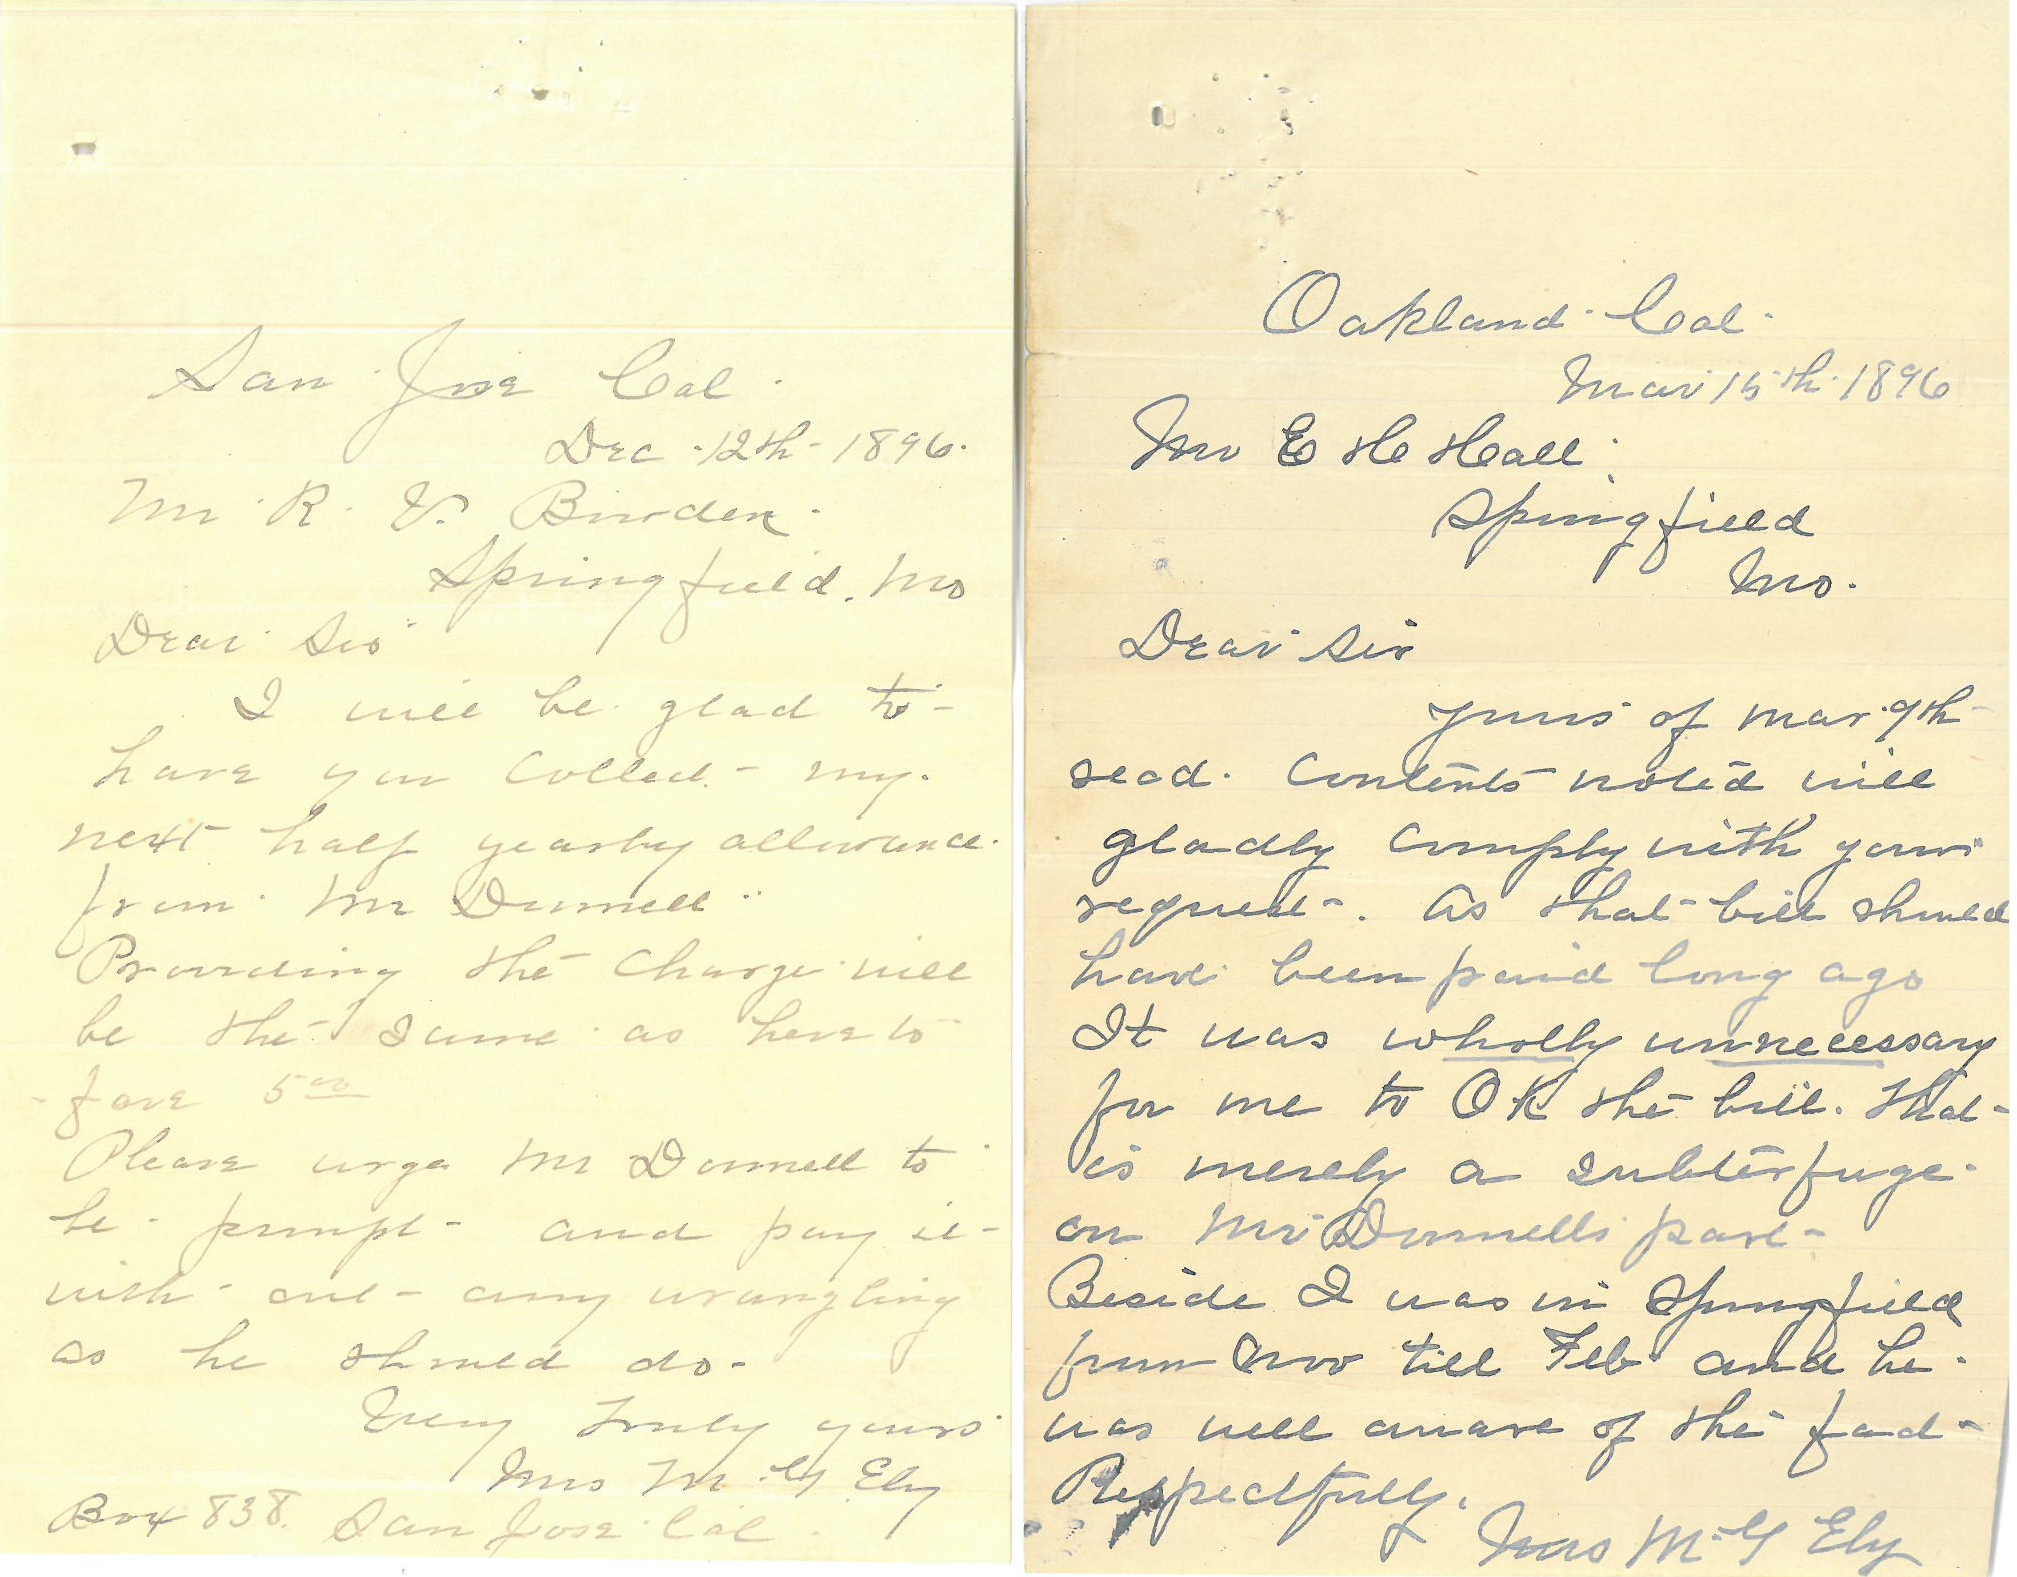 San Jose Cal.
Dec. 12th - 1896.
Mr. R. V. Burden.
Springfield. Mo
Dear Sir
I will be glad to
have you collect my.
next half yearly allowance.
from Mr Donnell.
Providing the charge will
be the same as here to
- fore 5.00
Please urge Mr Donnell to
be prompt and pay it
with out any wrangling
as he should do.
Very truly yours
Mrs M. G Ely
Box 838. San Jose Cal.
Oakland. Cal.
Mar 15th. 1896
Mr E H Hall.
Springfield
Mo.
Dear Sir
yours of Mar. 9th
recd. Contents noted will
gladly comply with your
request. As that bill should
have been paid long ago
It was wholly unnecessary
for me to OK the bill. That
is merely a subterfuge.
on Mr Donnells part
Beside I was in Springfield
from Nov till Feb and he.
was well aware of the fact
Respectfully.
Mrs M. G Ely